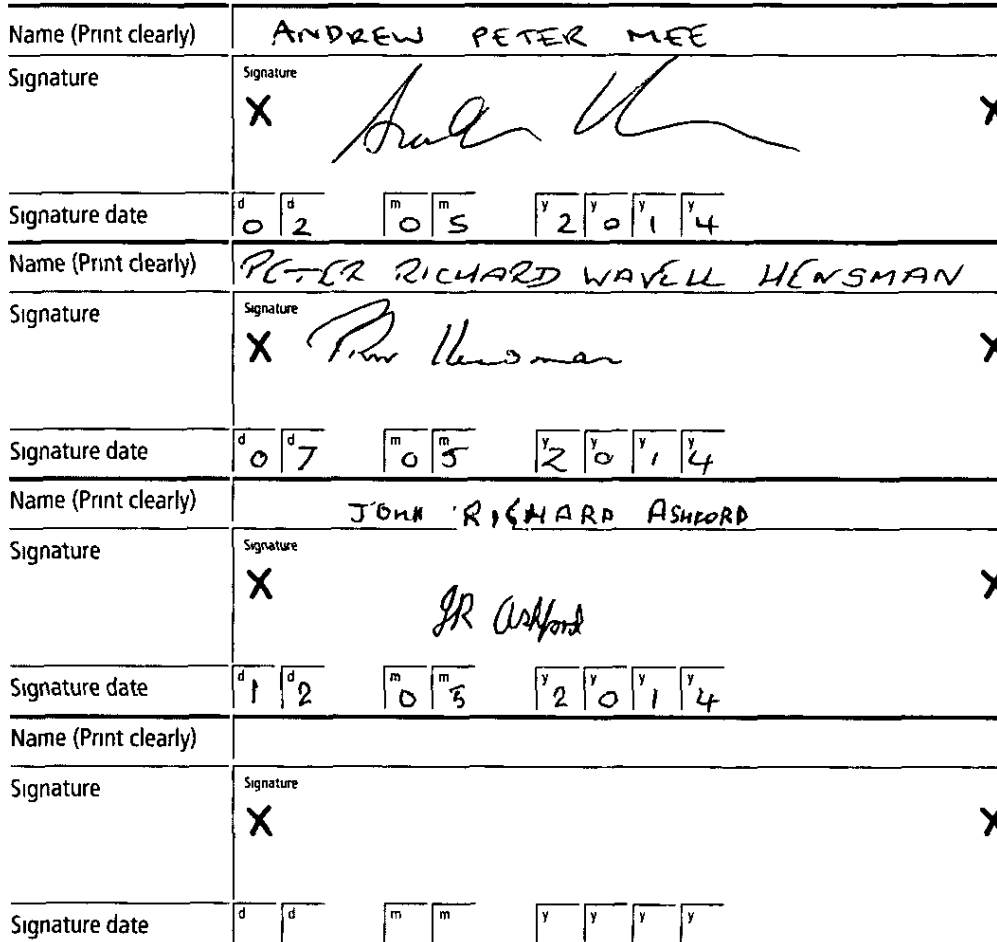 Name (Print clearly) ANDREW PETER MEE
Signature Signature
X X
Signature date d 0 d 2 m 0 m 5 y 2 y 0 y 1 y 4
Name (Print clearly) PETER RICHARD WAVELL HENSMAN
Signature Signature
X Hensman X
Signature date d 0 d 7 m 0 m 5 y 2 y 0 y 1 y 4
Name (Print clearly) JOHN RICHARD ASHFORD
Signature Signature
X JR Ashford X
Signature date d 1 d 2 m 0 m 5 y 2 y 0 y 1 y 4
Name (Print clearly)
Signature Signature
X X
Signature date d d m m y y y y